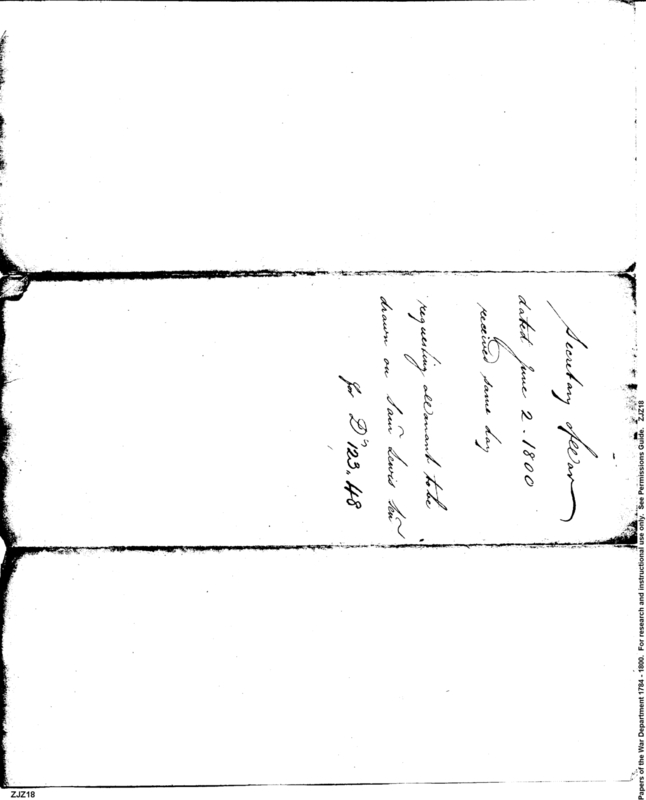 Secretary of War
dated June 2. 1800
received same day
requesting a Warrant to be
drawn on Sam Lewis Sen
for Drs 123.48
Papers of the War Department 1784 - 1800. For research and instructional use only. See Permissions Guide. ZJZ18
ZJZ18